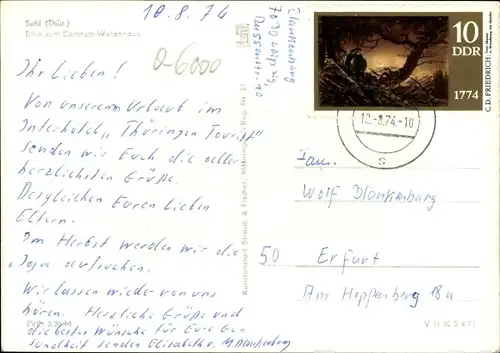 Suhl (Thür.)
Blick zum Centrum-Warenhaus
10.8.74
0-6000
Ihr Lieben!
Von unserem Urlaub im
Interhotel „Thüringen Tourist"
senden wir Euch die aller
herzlichsten Grüße.
Desgleichen Euren lieben
Eltern.
Im Herbst werden wir die
„Joga aufsuchen.
Wir lassen wieder von uns
hören. Herzliche Grüße und
die besten Wünsche für Eure Ge-
sundheit senden Elisabeth u. M. Blankenburg
EVP: 0,20 M
Blankenburg
7030 Leipzig,
10
Kunstanstalt Straub & Fischer, Meiningen
10
DDR
1774
C. D. FRIEDRICH
12.-8.74.-16
S
Fam.
Wolf Blankenburg
50 Erfurt
Am Hoppenberg 18a